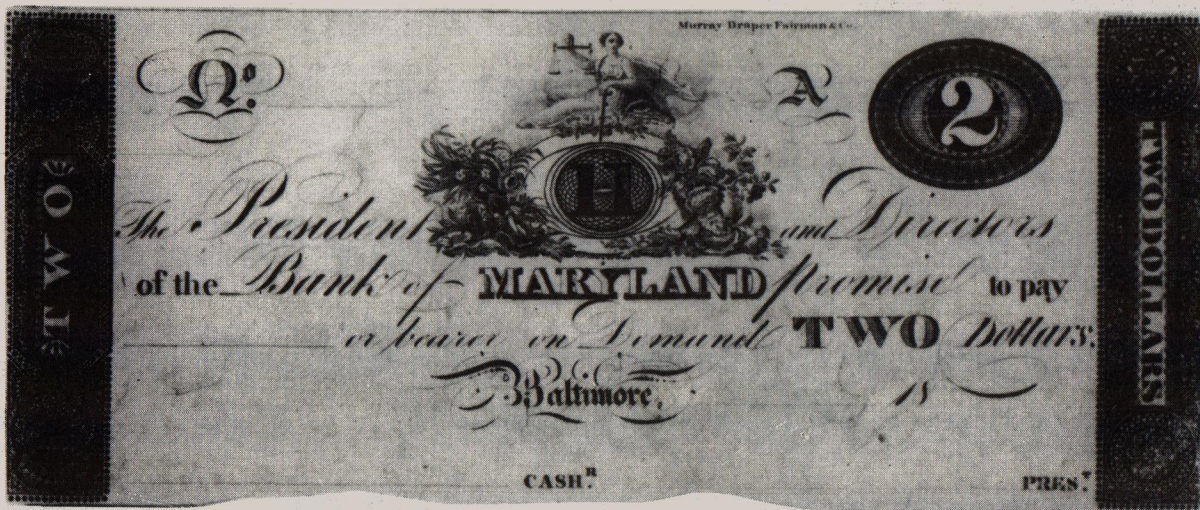 Murray Draper Fairman & Co.
No.
A
2
TWO
TWO DOLLARS
The President and Directors
of the Bank of MARYLAND promise to pay
or bearer on Demand TWO Dollars.
Baltimore, 18
CASHR.
PREST.